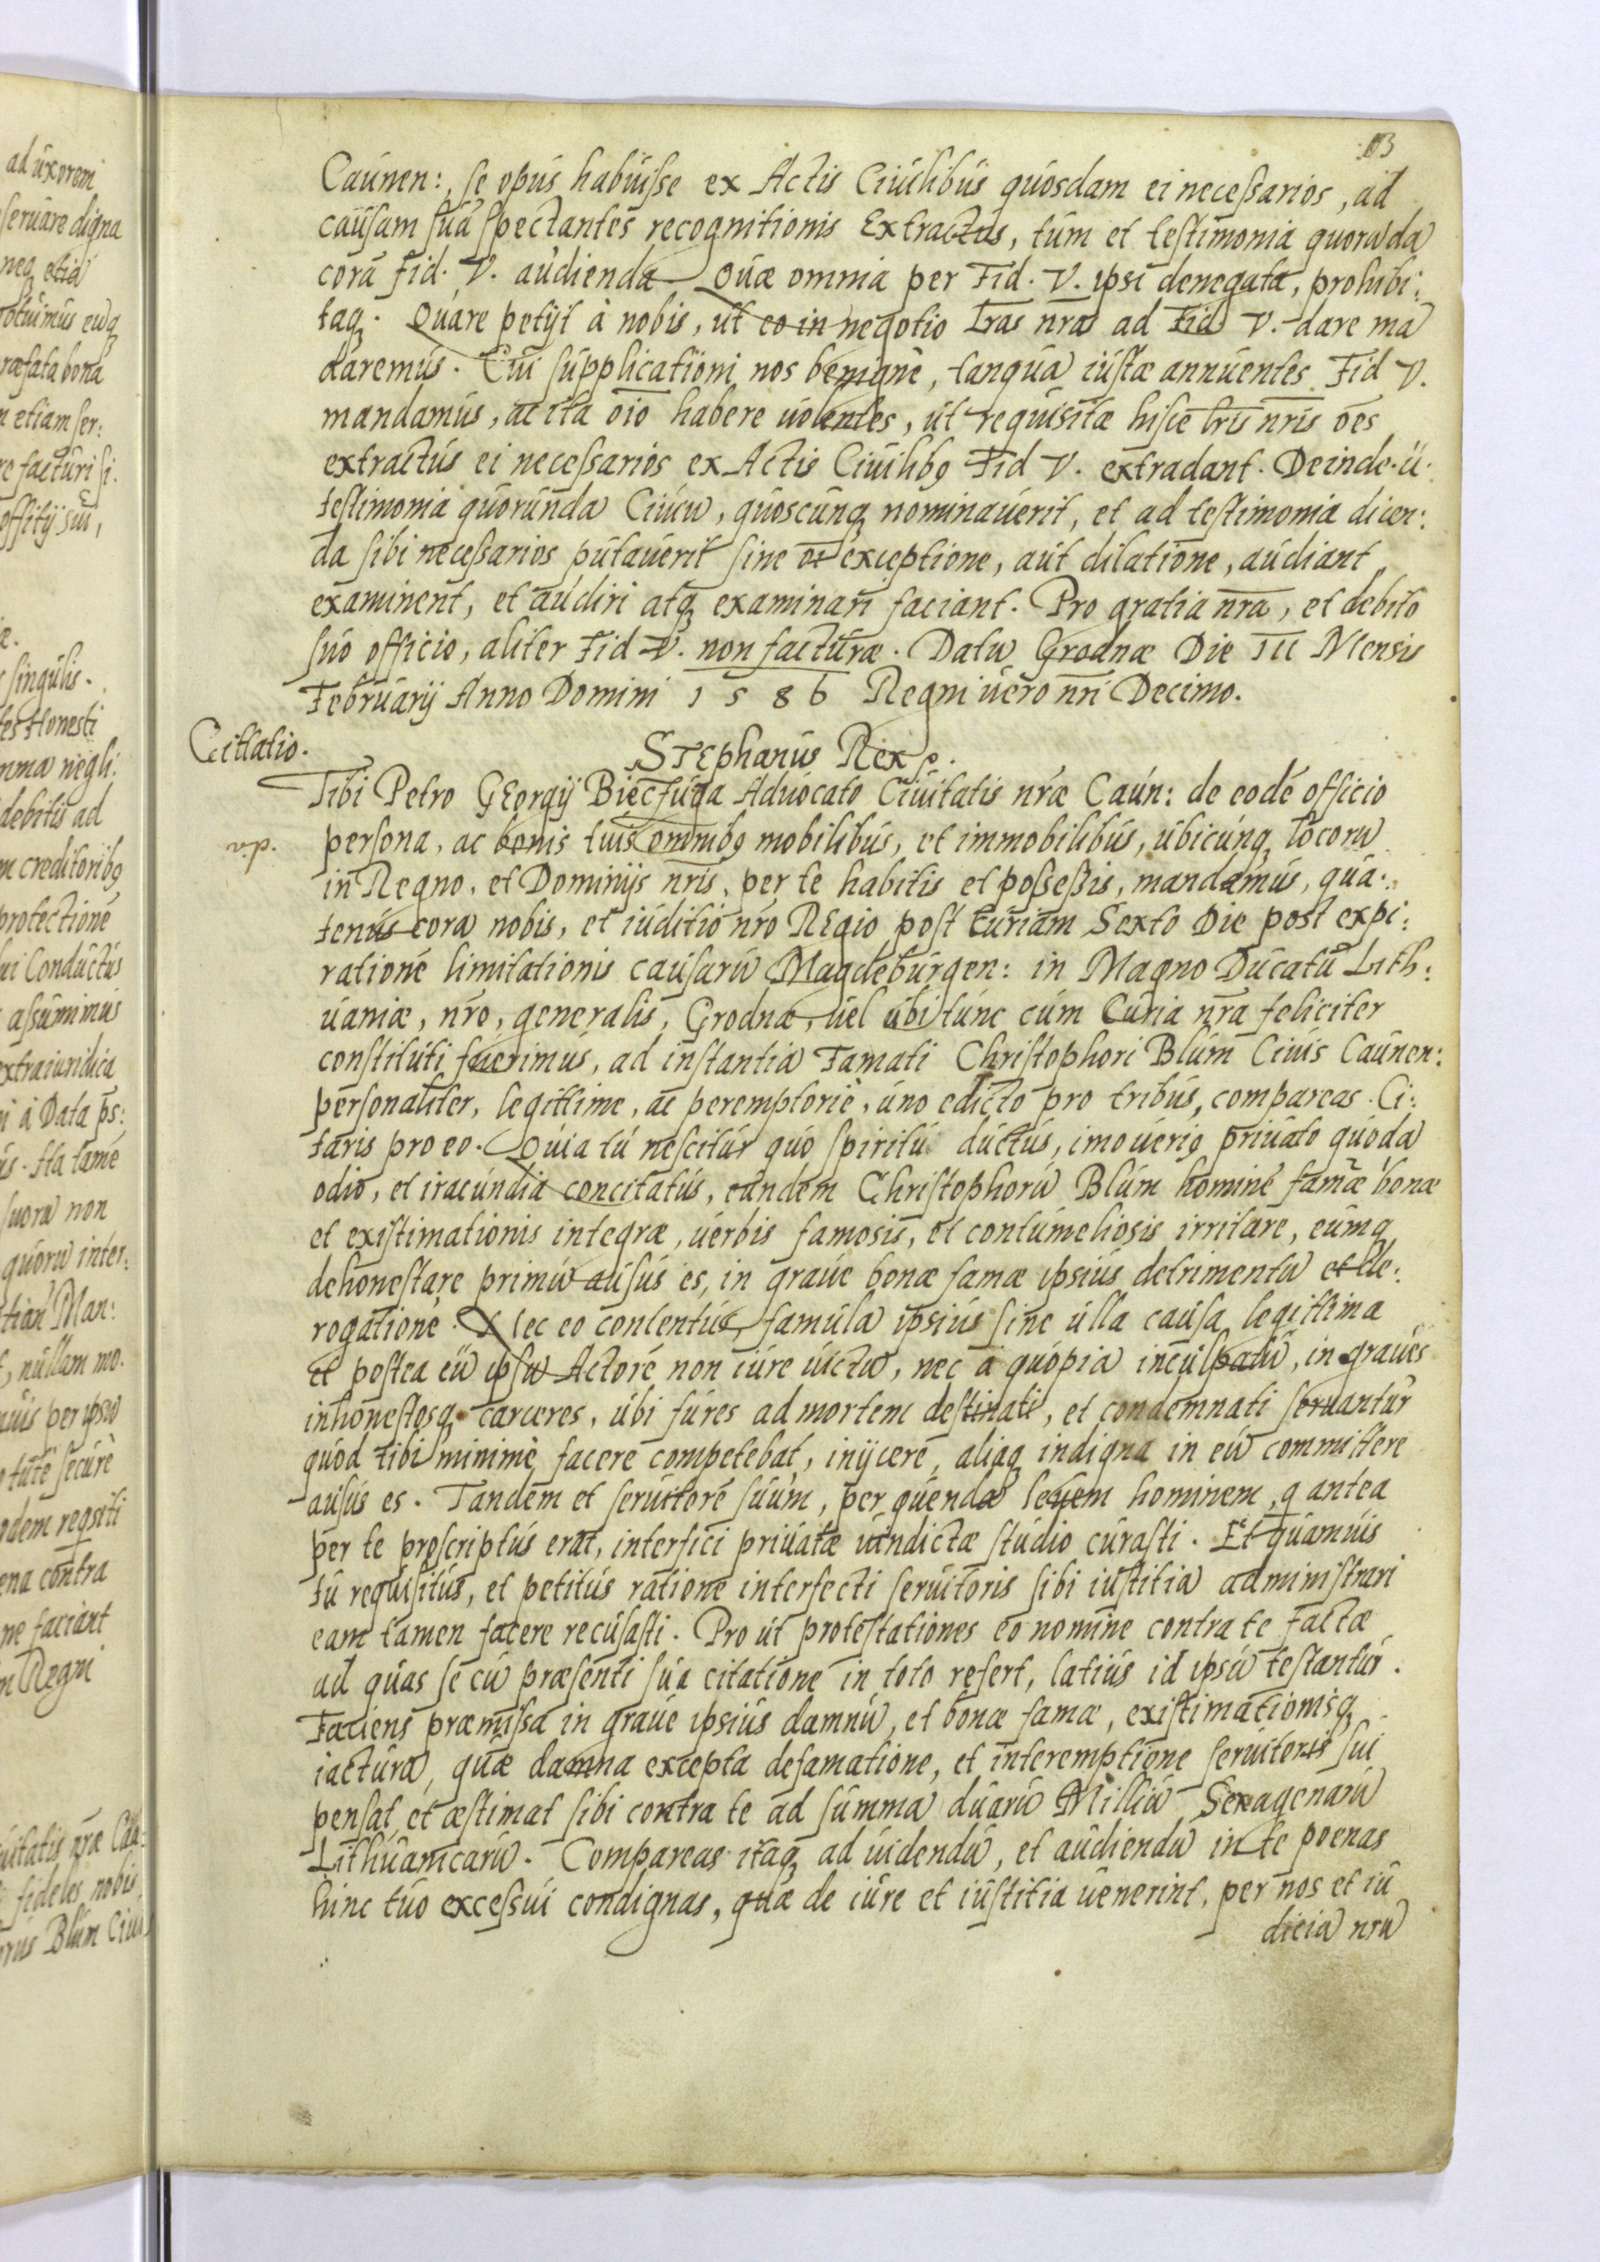 113
Caunen:, se opus habuisse ex Actis Ciuilibus quosdam ei necessarios, ad
causam suã spectantes recognitionis Extractus, tum et testimonia quorũdã
corã Fid. V. audienda. Quæ omnia per Fid. V. ipsi denegata, prohibi:
taq3. Quare petijt à nobis, ut eo in negotio Lras nras ad Fid V. dare mã
daremus. Cui supplicationi nos benigne, tanquã iustæ annuentes Fid V.
mandamus, ac ita oīo habere uolentes, ut requisitæ hisce lris nris oēs
extractus ei necessarios ex Actis Ciuilib9 Fid V. extradant. Deinde ũ
testimonia quorundã Ciuiũ, quoscunq3 nominauerit, et ad testimonia dicen:
da sibi necessarios putauerit sine oī exceptione, aut dilatione, audiant
examinent, et audiri atq3 examinari faciant. Pro gratia nra, et debito
suo officio, aliter Fid V. non facturæ. Datũ Grodnæ Die III Mensis
Februarij Anno Domini 1586 Regni uero nri Decimo.
Cittatio.
Stephanus Rex p.
Tibi Petro Georgij Biectuga Aduocato Ciuitatis nræ Caun: de eodē officio
persona, ac bonis tuis omnib9 mobilibus, et immobilibus, ubicunq3 locorũ
in Regno, et Dominijs nris, per te habitis et possessis, mandamus, qua:
tenus corã nobis, et iuditio nro Regio post Curiam Sexto Die post expi:
rationē limitationis causarũ Magdeburgen: in Magno Ducatu Lith:
uaniæ, nro, generalis, Grodnæ, uel ubi tunc cum Curia nra feliciter
constituti fuerimus, ad instantiã Famati Christophori Blum Ciuis Caunen:
personaliter, legittime, ac peremptorie, uno edicto pro tribus, compareas. Ci:
taris pro eo. Quia tu nescitur quo spiritu ductus, imoueri9 priuato quodã
odio, et iracundiã concitatus, eundem Christophorũ Blum hominē famæ bonæ
et existimationis integræ, uerbis famosis, et contumeliosis irritare, eumq3
dehonestare primũ ausus es, in graue bonæ famæ ipsius detrimentũ et de:
rogationē. Nec eo contentus, famulã ipsius sine ulla causa legittima
et postea eũ ipsũ Actorē non iure uictũ, nec à quopiã inculpatũ, in graues
inhonestosq3 carceres, ubi fures ad mortem destinati, et condemnati seruantur
quod tibi minimè facere competebat, inijcere, aliaq3 indigna in eũ committere
ausus es. Tandem et seruitorē suum, per quendã leuem hominem, q antea
per te proscriptus erat, interfici priuatæ uindictæ studio curasti. Et quamuis
tu requisitus, et petitus ratione interfecti seruitoris sibi iustitiã administrari
eam tamen facere recusasti. Pro ut protestationes eo nomine contra te factæ
ad quas se cũ præsenti sua citatione in toto refert, latius id ipsũ testantur.
Faciens præmissa in graue ipsius damnũ, et bonæ famæ, existimationisq3
iacturã, quæ damna excepta defamatione, et interemptione seruitoris sui
pensat, et æstimat sibi contra te ad summã duarũ Milliũ Sexagenarũ
Lithuanicarũ. Compareas itaq3 ad uidendũ, et audiendũ in te poenas
hinc tuo excessui condignas, quæ de iure et iustitia uenerint, per nos et iu
diciã nrũ